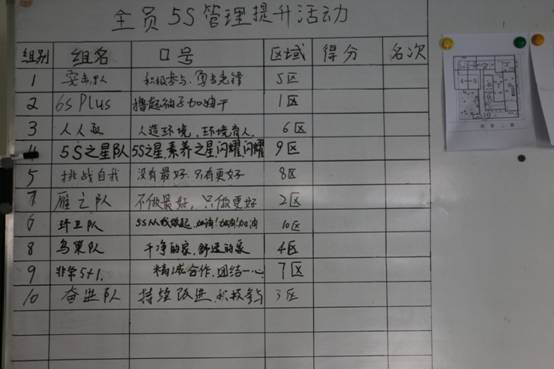 全员5S管理提升活动
组别 组名 口号 区域 得分 名次
1 突击队 积极参与,勇当先锋 5区
2 6S Plus 撸起袖子加油干 1区
3 人人 人造环境,环境育人. 6区
4 5S之星队 5S之星,素养之星闪耀闪耀 9区
5 挑战自我 没有最好,只有更好 8区
7 雁之队 不做最好,只做更好 2区
6 环卫队 5S从我做起,加油!加油!加油 10区
8 鸟巢队 干净的家,舒适的家 4区
9 非常5+1. 精诚合作,团结一心 7区
10 奋进队 持续改进,积极参与 3区